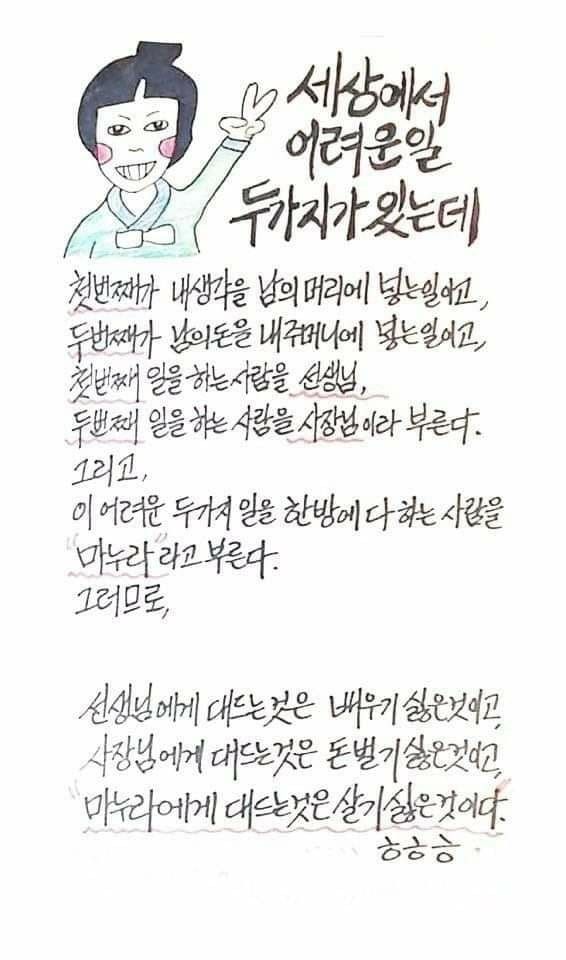 세상에서
어려운일
두가지가있는데
첫번째가 내생각을 남의머리에 넣는일이고,
두번째가 남의돈을 내주머니에 넣는일이고,
첫번째 일을하는사람을 선생님,
두번째 일을하는 사람을 사장님이라 부른다.
그리고,
이 어려운 두가지 일을 한방에 다 하는 사람을
"마누라"라고 부른다.
그러므로,
선생님에게 대드는것은 배우기싫은것이고,
사장님에게 대드는것은 돈벌기싫은것이고,
"마누라에게 대드는것은살기싫은것이다."
ㅎㅎㅎ